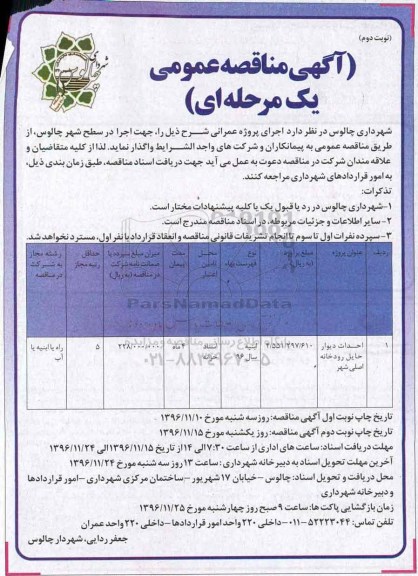 (نوبت دوم)
(آگهی مناقصه عمومی
یک مرحله ای)
شهرداری چالوس
شهرداری چالوس در نظر دارد اجرای پروژه عمرانی شرح ذیل را، جهت اجرا در سطح شهر چالوس، از
طریق مناقصه عمومی به پیمانکاران و شرکت های واجد الشرایط واگذار نماید. لذا از کلیه متقاضیان و
علاقه مندان شرکت در مناقصه دعوت به عمل می آید جهت دریافت اسناد مناقصه، طبق زمان بندی ذیل،
به امور قراردادهای شهرداری مراجعه کنند.
تذکرات:
۱-شهرداری چالوس در رد یا قبول یک یا کلیه پیشنهادات مختار است.
۲- سایر اطلاعات و جزئیات مربوطه، در اسناد مناقصه مندرج است.
۳-سپرده نفرات اول تا سوم تا انجام تشریفات قانونی مناقصه و انعقاد قرارداد با نفر اول، مسترد نخواهد شد.
ردیف عنوان پروژه مبلغ برآورد (به ریال) نوع فهرست بها محل تامین اعتبار مدت پیمان میزان مبلغ سپرده یا ضمانت نامه شرکت در مناقصه (به ریال) حداقل رتبه مجاز رشته مجاز به شرکت در مناقصه
ParsNamadData
۰۲۱-۸۸۳۴۹۶۷۰-۵
۱ احداث دیوار حایل رودخانه اصلی شهر ۴/۵۵۱/۲۹۷/۶۱۰ ابنیه سال ۹۶ اسناد خزانه ۴ ماه ۲۲۸/۰۰۰/۰۰۰ ۵ راه یا ابنیه یا آب
تاریخ چاپ نوبت اول آگهی مناقصه: روز سه شنبه مورخ ۱۳۹۶/۱۱/۱۰
تاریخ چاپ نوبت دوم آگهی مناقصه: روز یکشنبه مورخ ۱۳۹۶/۱۱/۱۵
مهلت دریافت اسناد: ساعت های اداری از ساعت ۷:۳۰ الی ۱۴ از تاریخ ۱۳۹۶/۱۱/۱۵ الی ۱۳۹۶/۱۱/۲۴
آخرین مهلت تحویل اسناد به دبیرخانه شهرداری: ساعت ۱۳ روز سه شنبه مورخ ۱۳۹۶/۱۱/۲۴
محل دریافت و تحویل اسناد: چالوس -خیابان ۱۷ شهریور -ساختمان مرکزی شهرداری -امور قراردادها
و دبیرخانه شهرداری
زمان بازگشایی پاکت ها: ساعت ۹ صبح روز چهارشنبه مورخ ۱۳۹۶/۱۱/۲۵
تلفن تماس: ۵۲۲۲۳۰۴۴-۰۱۱-داخلی ۲۲۰ واحد امور قراردادها -داخلی ۲۲۰ واحد عمران
جعفر ردایی، شهردار چالوس